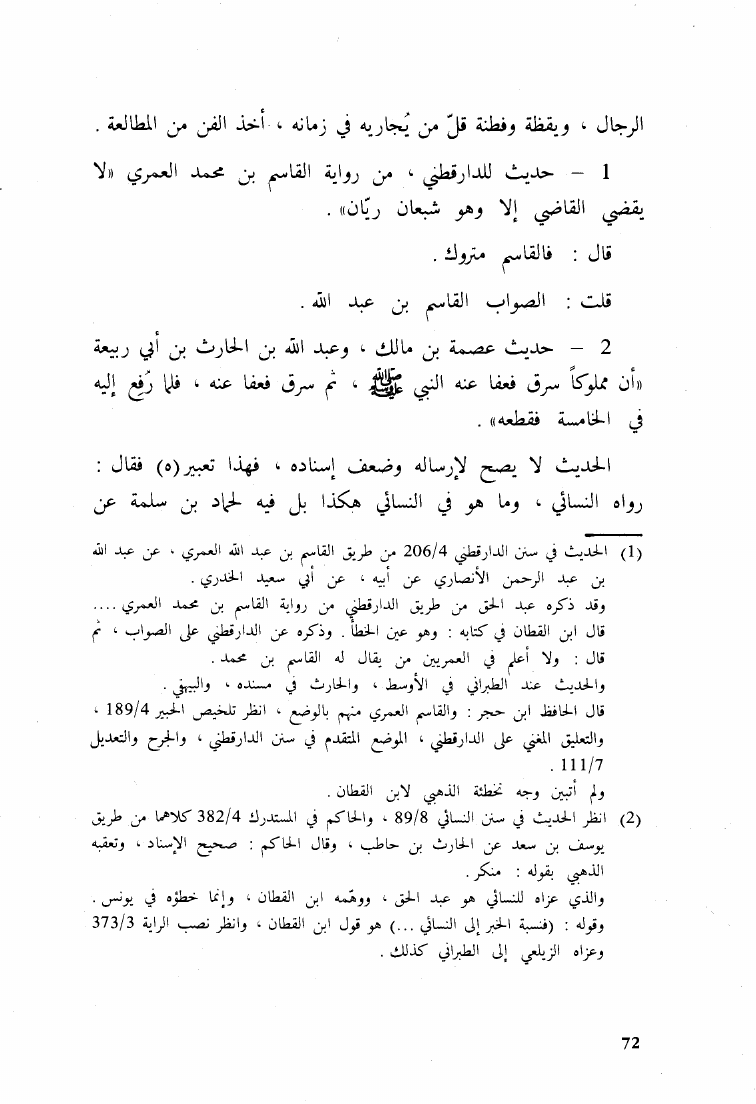 الرجال ، ويقظة وفطنة قلّ من يُجاريه في زمانه ، أخذ الفن من المطالعة .
1 – حديث للدارقطني ، من رواية القاسم بن محمد العمري «لا
يقضي القاضي إلا وهو شبعان ريّان» .
قال : فالقاسم متروك .
قلت : الصواب القاسم بن عبد الله .
2 – حديث عصمة بن مالك ، وعبد الله بن الحارث بن أبي ربيعة
«أن مملوكاً سرق فعفا عنه النبي ﷺ ، ثم سرق فعفا عنه ، فلما رُفع إليه
في الخامسة فقطعه» .
الحديث لا يصح لإرساله وضعف إسناده ، فهذا تعبير(٥) فقال :
رواه النسائي ، وما هو في النسائي هكذا بل فيه لحماد بن سلمة عن
(1) الحديث في سنن الدارقطني 206/4 من طريق القاسم بن عبد الله العمري ، عن عبد الله
بن عبد الرحمن الأنصاري عن أبيه ، عن أبي سعيد الخدري .
وقد ذكره عبد الحق من طريق الدارقطني من رواية القاسم بن محمد العمري ....
قال ابن القطان في كتابه : وهو عين الخطأ . وذكره عن الدارقطني على الصواب ، ثم
قال : ولا أعلم في العمريين من يقال له القاسم بن محمد .
والحديث عند الطبراني في الأوسط ، والحارث في مسنده ، والبيهقي .
قال الحافظ ابن حجر : والقاسم العمري متهم بالوضع ، انظر تلخيص الحبير 189/4 ،
والتعليق المغني على الدارقطني ، الموضع المتقدم في سنن الدارقطني ، والجرح والتعديل
111/7 .
ولم أتبين وجه تخطئة الذهبي لابن القطان .
(2) انظر الحديث في سنن النسائي 89/8 ، والحاكم في المستدرك 382/4 كلاهما من طريق
يوسف بن سعد عن الحارث بن حاطب ، وقال الحاكم : صحيح الإسناد ، وتعقبه
الذهبي بقوله : منكر .
والذي عزاه للنسائي هو عبد الحق ، ووهّمه ابن القطان ، وإنما خطؤه في يونس .
وقوله : (فنسبة الخبر إلى النسائي ...) هو قول ابن القطان ، وانظر نصب الراية 373/3
وعزاه الزيلعي إلى الطبراني كذلك .
72